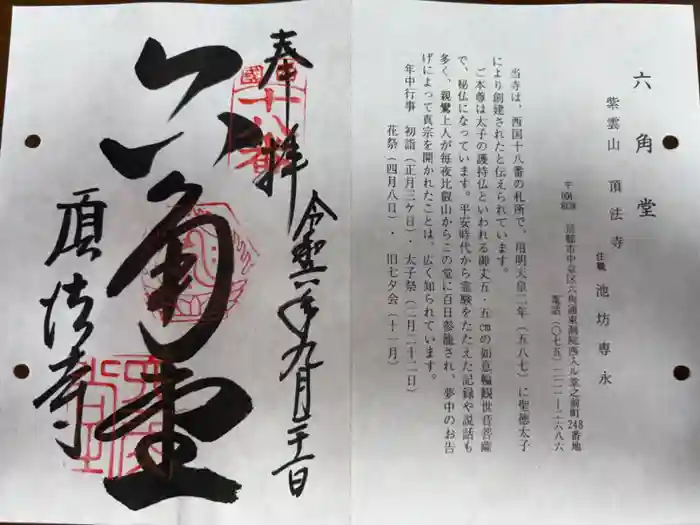 六角堂
紫雲山 頂法寺
住職 池坊専永
〒604-8134 京都市中京区六角通東洞院西入ル堂之前町248番地
電話(〇七五)二二一-二六八六
当寺は、西国十八番の札所で、用明天皇二年(五八七)に聖徳太子
により創建されたと伝えられています。
ご本尊は太子の護持仏といわれる御丈五・五cmの如意輪観世音菩薩
で、秘仏になっています。平安時代から霊験をたたえた記録や説話も
多く、親鸞上人が毎夜比叡山からこの堂に百日参籠され、夢中のお告
げによって真宗を開かれたことは、広く知られています。
年中行事 初詣(正月三ケ日)・太子祭(二月二十二日)
花祭(四月八日)・旧七夕会(十一月)
奉拝
令和六年九月二十一日
西国十八番
六角堂
頂法寺